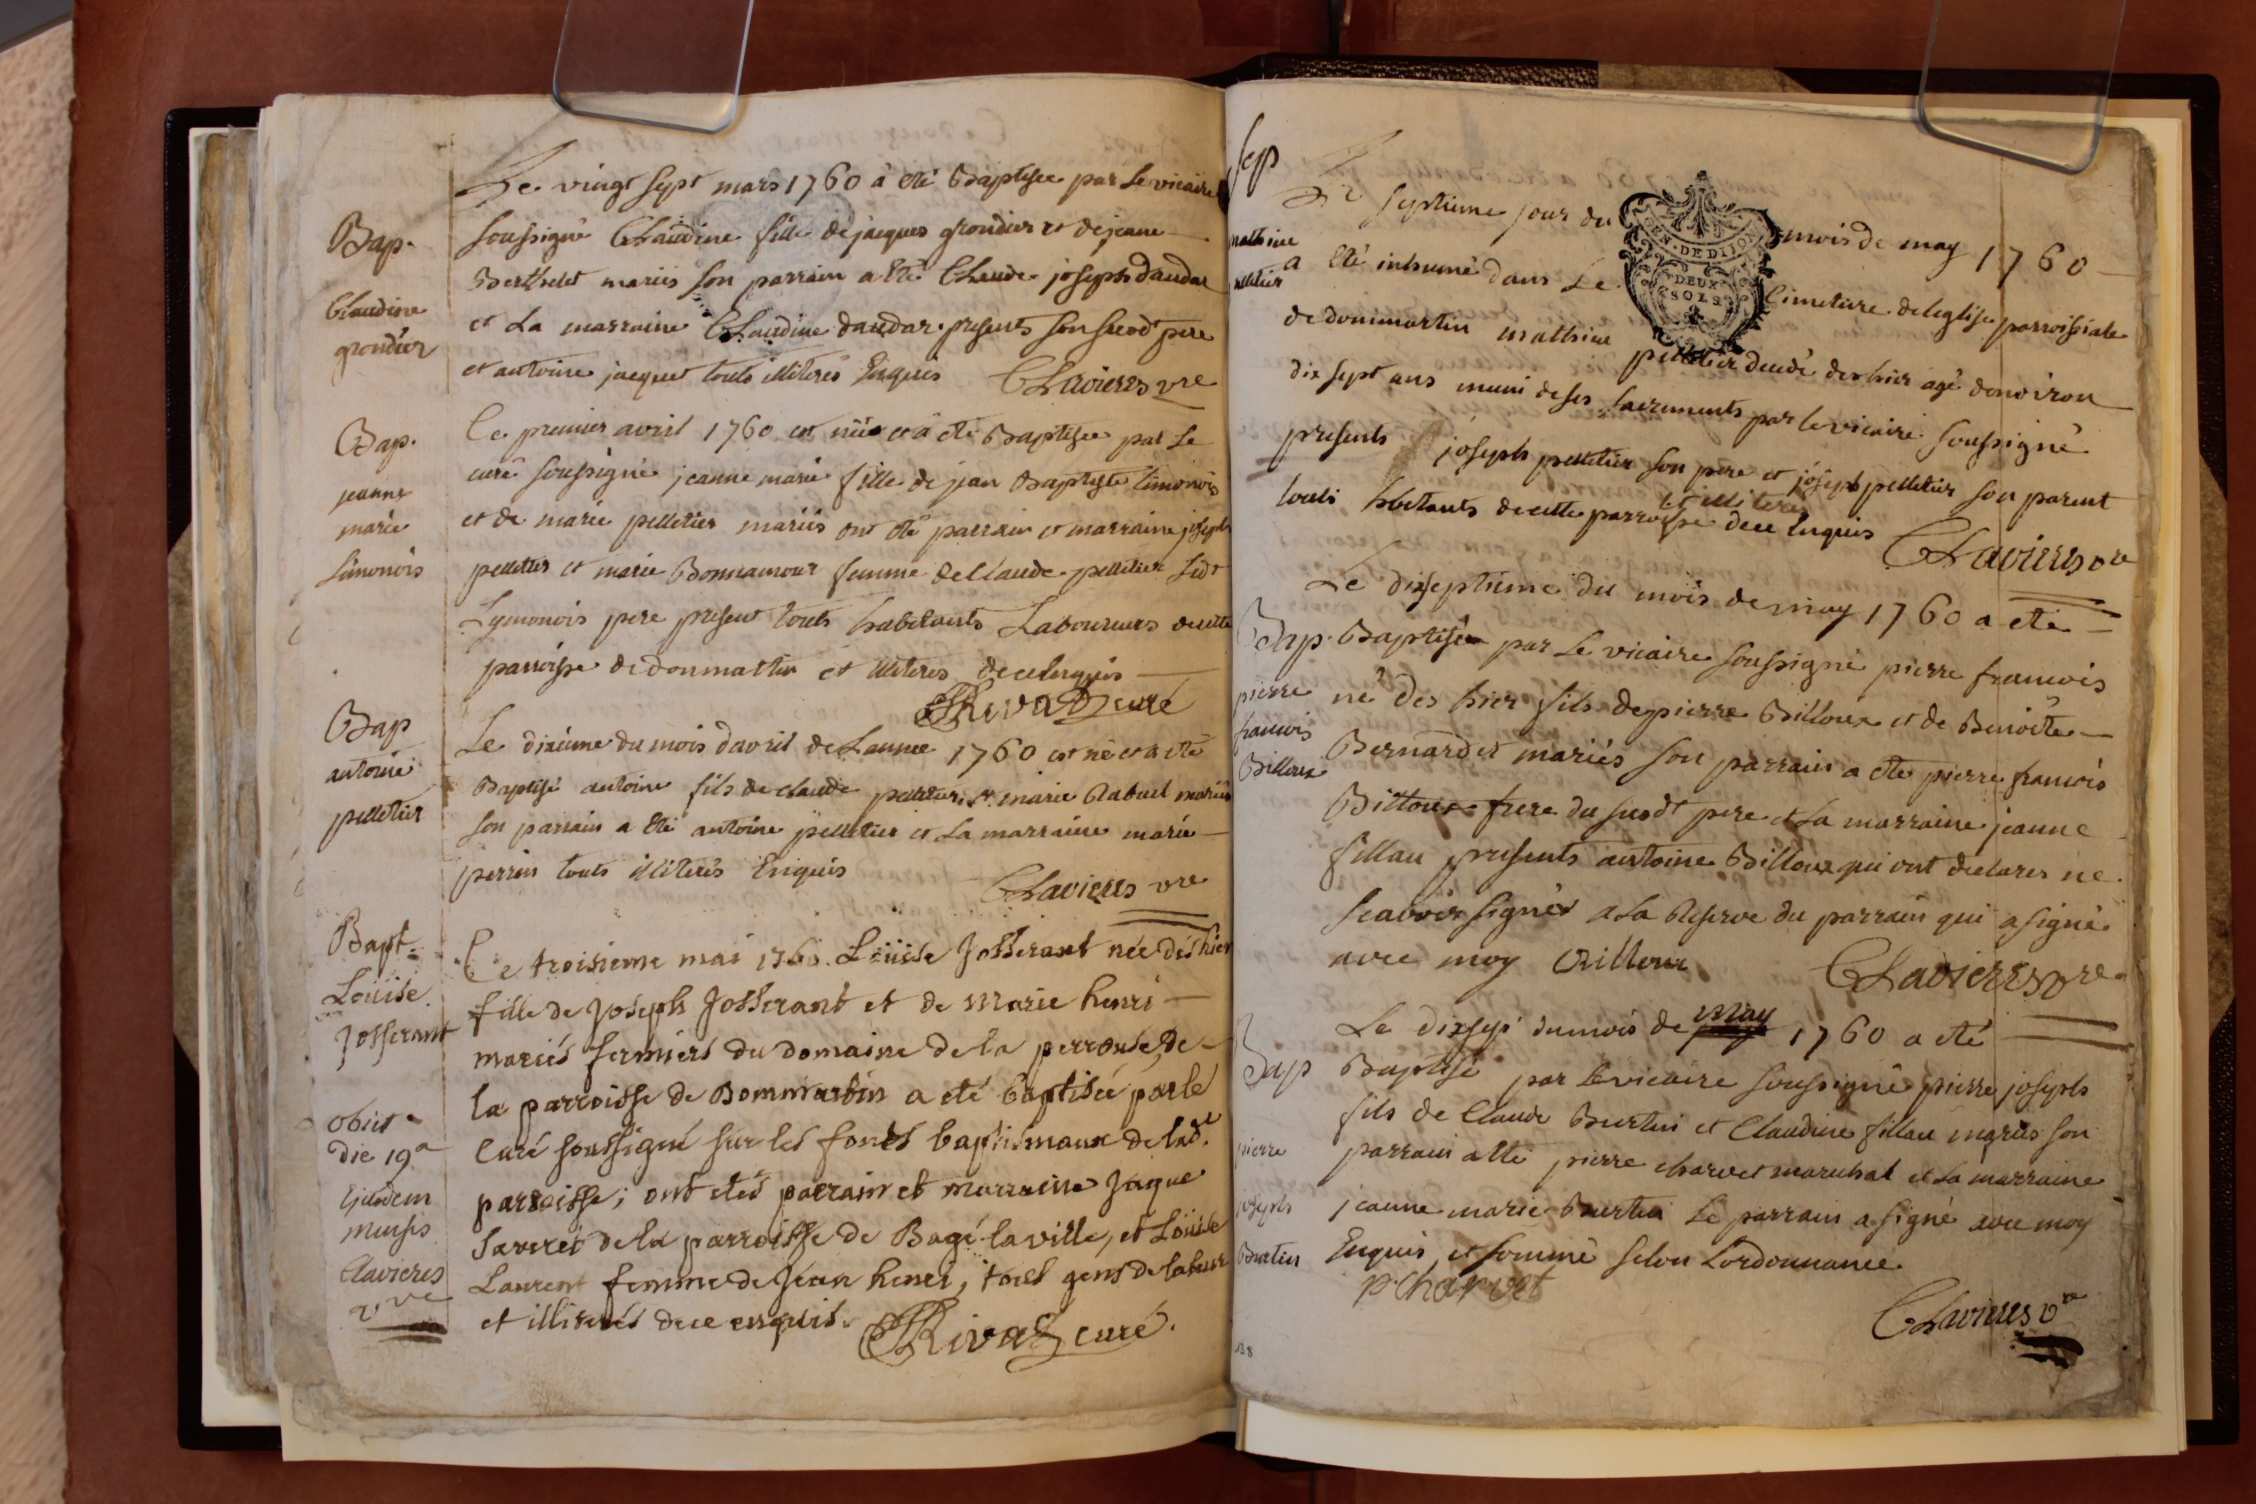 Le vingt sept mars 1760 à eté Baptisee par Le vicaire
Bap. soussigné Claudine fille de jacques grondier et de jeanne
Berthelet mariés son parrain a eté Claude joseph dandar
Claudine et La marraine Claudine dandar presents son susdt pere
grondier et antoine jacquet touts illiterés Enquis Clavieres vre
Bap. Ce premier avril 1760 est née et à eté Baptisee par Le
jeanne curé soussigné jeanne marie fille de jean Baptiste Limonois
marie et de marie pelletier mariés ont eté parrain et marraine joseph
Limonois pelletier et marie Bonnamour femme de Claude pelletier susdt
Lymonois pere present touts habitants Laboureurs de cette
parroisse de donmartin et illiteres de ce enquis
Rivat curé
Bap Le dixieme du mois d'avril de Lannee 1760 est né et a eté
antoine Baptisé antoine fils de claude pelletier et marie Rabuel mariés
pelletier son parrain a eté antoine pelletier et La marraine marie
perrin touts illiterés Enquis
Clavieres vre
Bapt. Ce troisieme mai 1760 Loüise Josserant née dès hier
Loüise fille de Joseph Josserant et de Marie henri
Josserant mariés fermiers du domaine de la perrouse, de
la parroisse de Dommartin a eté baptisée par le
obiit Curé soussigné sur les fonts baptismaux de lad.e
die 19a parroisse; ont etés parrain et marraine Jaque
Ejusdem Saveret de la parroisse de Bagé-la ville, et Loüise
mensis Laurent femme de Jean henri, tous gens de labeur
Clavieres et illiterés de ce enquis.
vre Rivat curé.
Sep
Le septieme jour du mois de may 1760
GEN. DE DIJON
DEUX
SOLS
mathieu a eté inhumé dans Le Cimetiere de leglise parroissiale
pelletier de dommartin mathieu pelletier decedé des hier agé denviron
dix sept ans muni de ses sacrements par le vicaire soussigné
presents joseph pelletier son pere et joseph pelletier son parent
et illiteres
touts habitants de cette parroisse de ce Enquis
Clavieres vre
Le dixseptieme du mois de may 1760 a eté
Bap. Baptisé par Le vicaire soussigné pierre francois
pierre né des hier fils de pierre Billoux et de Benoite
francois Bernardet mariés son parrain a eté pierre francois
Billoux Billoux frere du susdt pere et La marraine jeanne
fillau presents antoine Billoux qui ont declarés ne
scavoir signér a La Reserve du parrain qui a signé
avec moy Billoux Clavieres vre
Le dixsept du mois de may 1760 a eté
Bap Baptisé par Le vicaire soussigné pierre joseph
fils de Claude Burtin et Claudine fillau mariés son
pierre parrain a eté pierre charvet marechal et La marraine
joseph jeanne marie Burtin Le parrain a signé avec moy
Burtin Enquis et sommé selon Lordonnance
p charvet
Clavieres vre
138